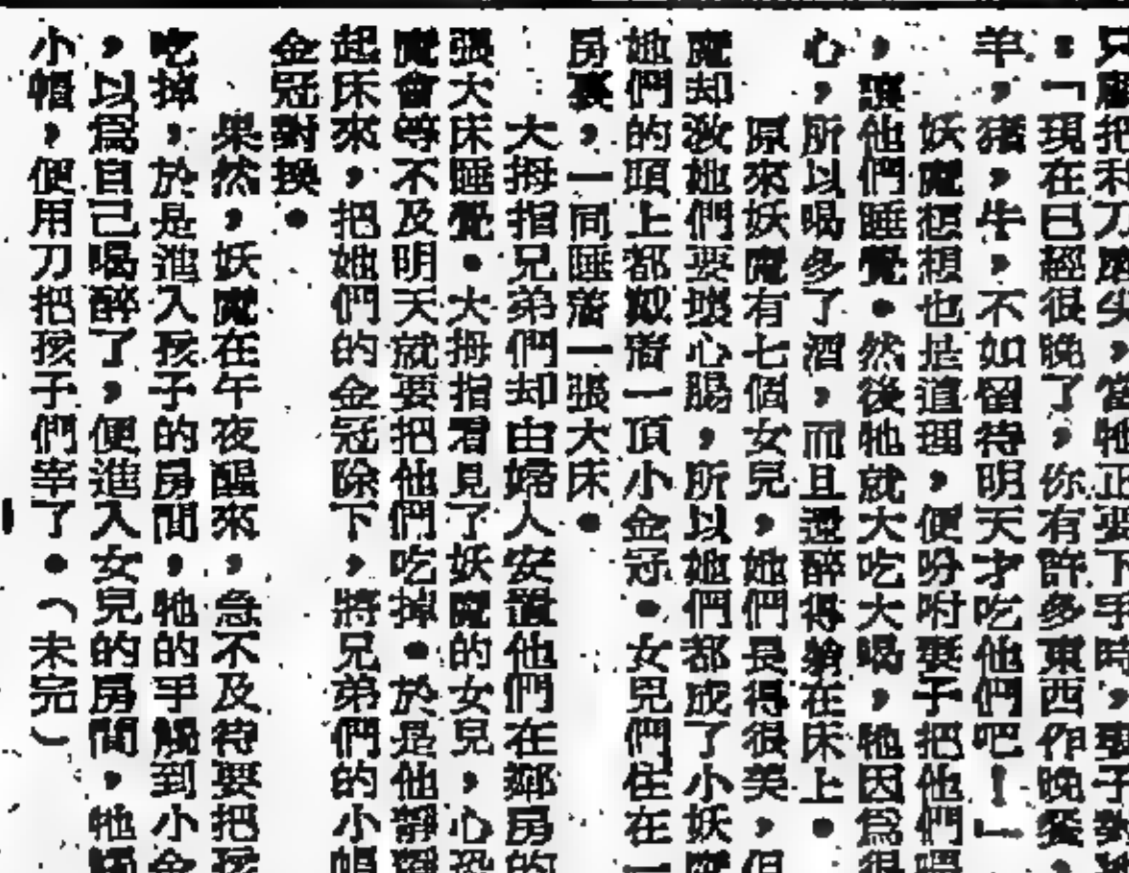 只應把利刀磨尖，當牠正要下手時，妻子對她
：「現在已經很晚了，你有許多東西作晚餐，
羊，猪，牛，不如留待明天才吃他們吧！」
妖魔想想也是道理，便吩咐妻子把他們喂
，讓他們睡覺。然後牠就大吃大喝，牠因爲很
心，所以喝多了酒，而且遭醉得躺在床上。
原來妖魔有七個女兒，她們長得很美，但
魔却教她們要壞心腸，所以她們都成了小妖魔
她們的頭上都戴着一頂小金冠。女兒們住在一
房裏，一同睡着一張大床。
大拇指兄弟們却由婦人安置他們在鄰房的
張大床睡覺。大拇指看見了妖魔的女兒，心恐
魔會等不及明天就要把他們吃掉。於是他靜靜
起床來，把她們的金冠除下，將兄弟們的小帽
金冠對換。
果然，妖魔在午夜醒來，急不及待要把孩
吃掉，於是進入孩子的房間，牠的手觸到小金
，以爲自己喝醉了，便進入女兒的房間，牠觸
小帽，便用刀把孩子們宰了。（未完）